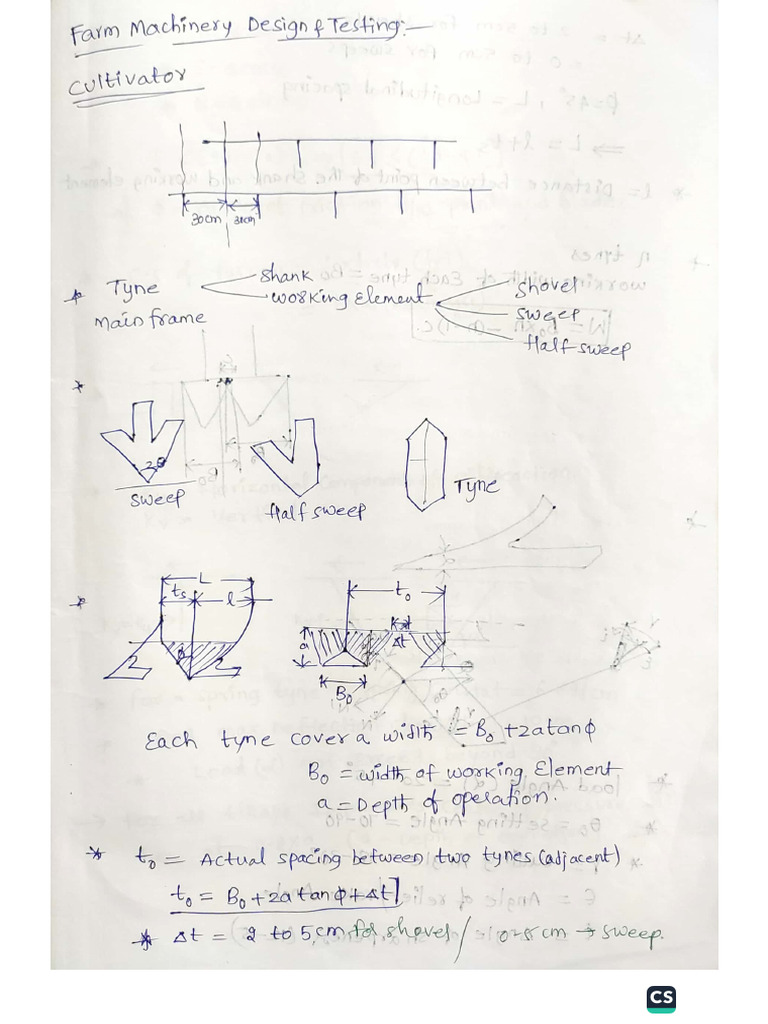 Farm Machinery Design & Testing:-
Cultivator
30cm 30cm
* Tyne
Main frame
Shank
Working Element
Shovel
Sweep
Half sweep
*
2θ
Sweep
Half sweep
Tyne
*
L
ts l
ϕ
t₀
Δt
a
B₀
Each tyne cover a width = B₀ + 2a tanϕ
B₀ = width of working Element
a = Depth of operation.
* t₀ = Actual spacing between two tynes (adjacent)
t₀ = B₀ + 2a tanϕ + Δt
* Δt = 2 to 5 cm for shovel / 0-8 cm → sweep.
CS